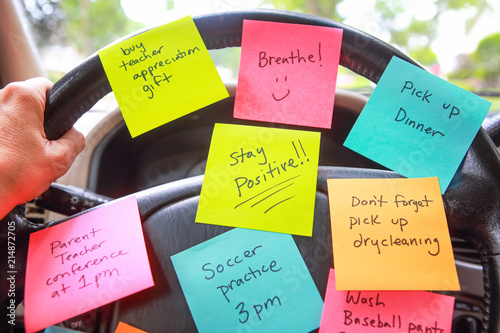 buy
teacher
appreciation
gift
Breathe!
Pick up
Dinner
Stay
Positive!!
Don't forget
pick up
drycleaning
Parent
Teacher
conference
at 1pm
Soccer
practice
3pm
Wash
Baseball pants
214872705